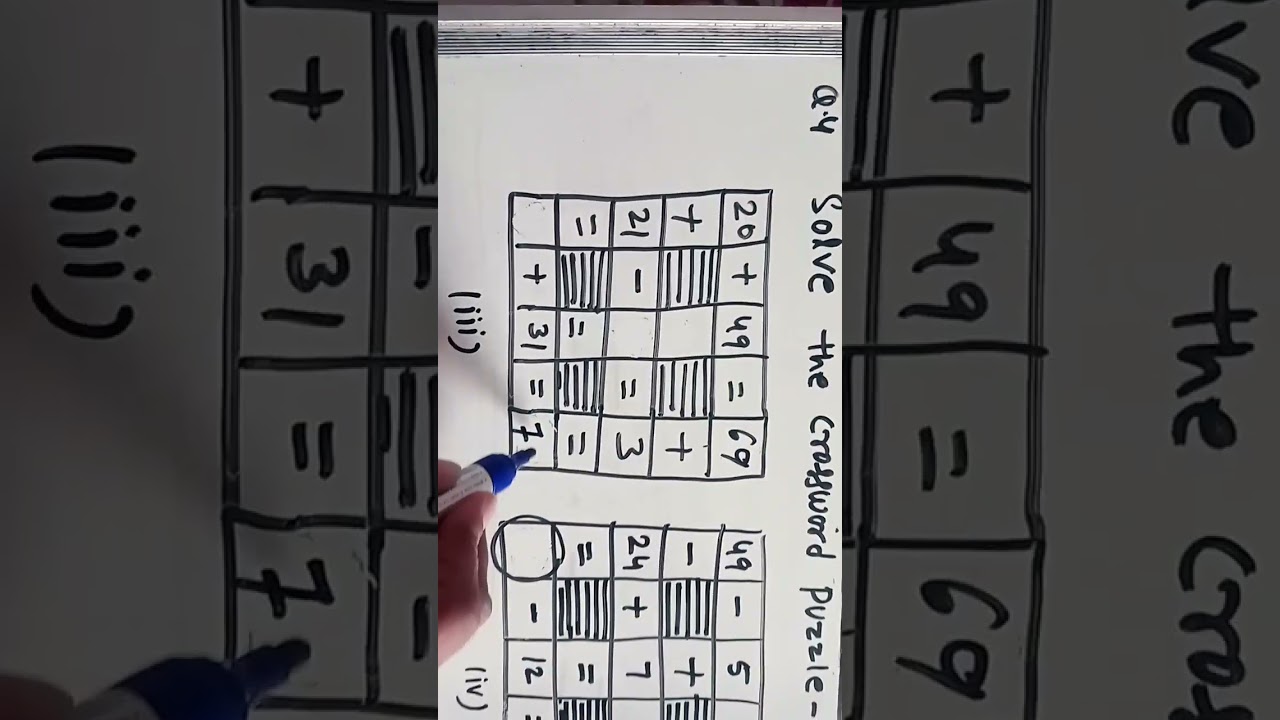 Q.4 Solve the crossword puzzle-
20 + 49 = 69 49 - 5
+ + - +
21 - = 3 24 + 7
= = = = =
+ 31 = 7 - 12 =
(iii) (iv)